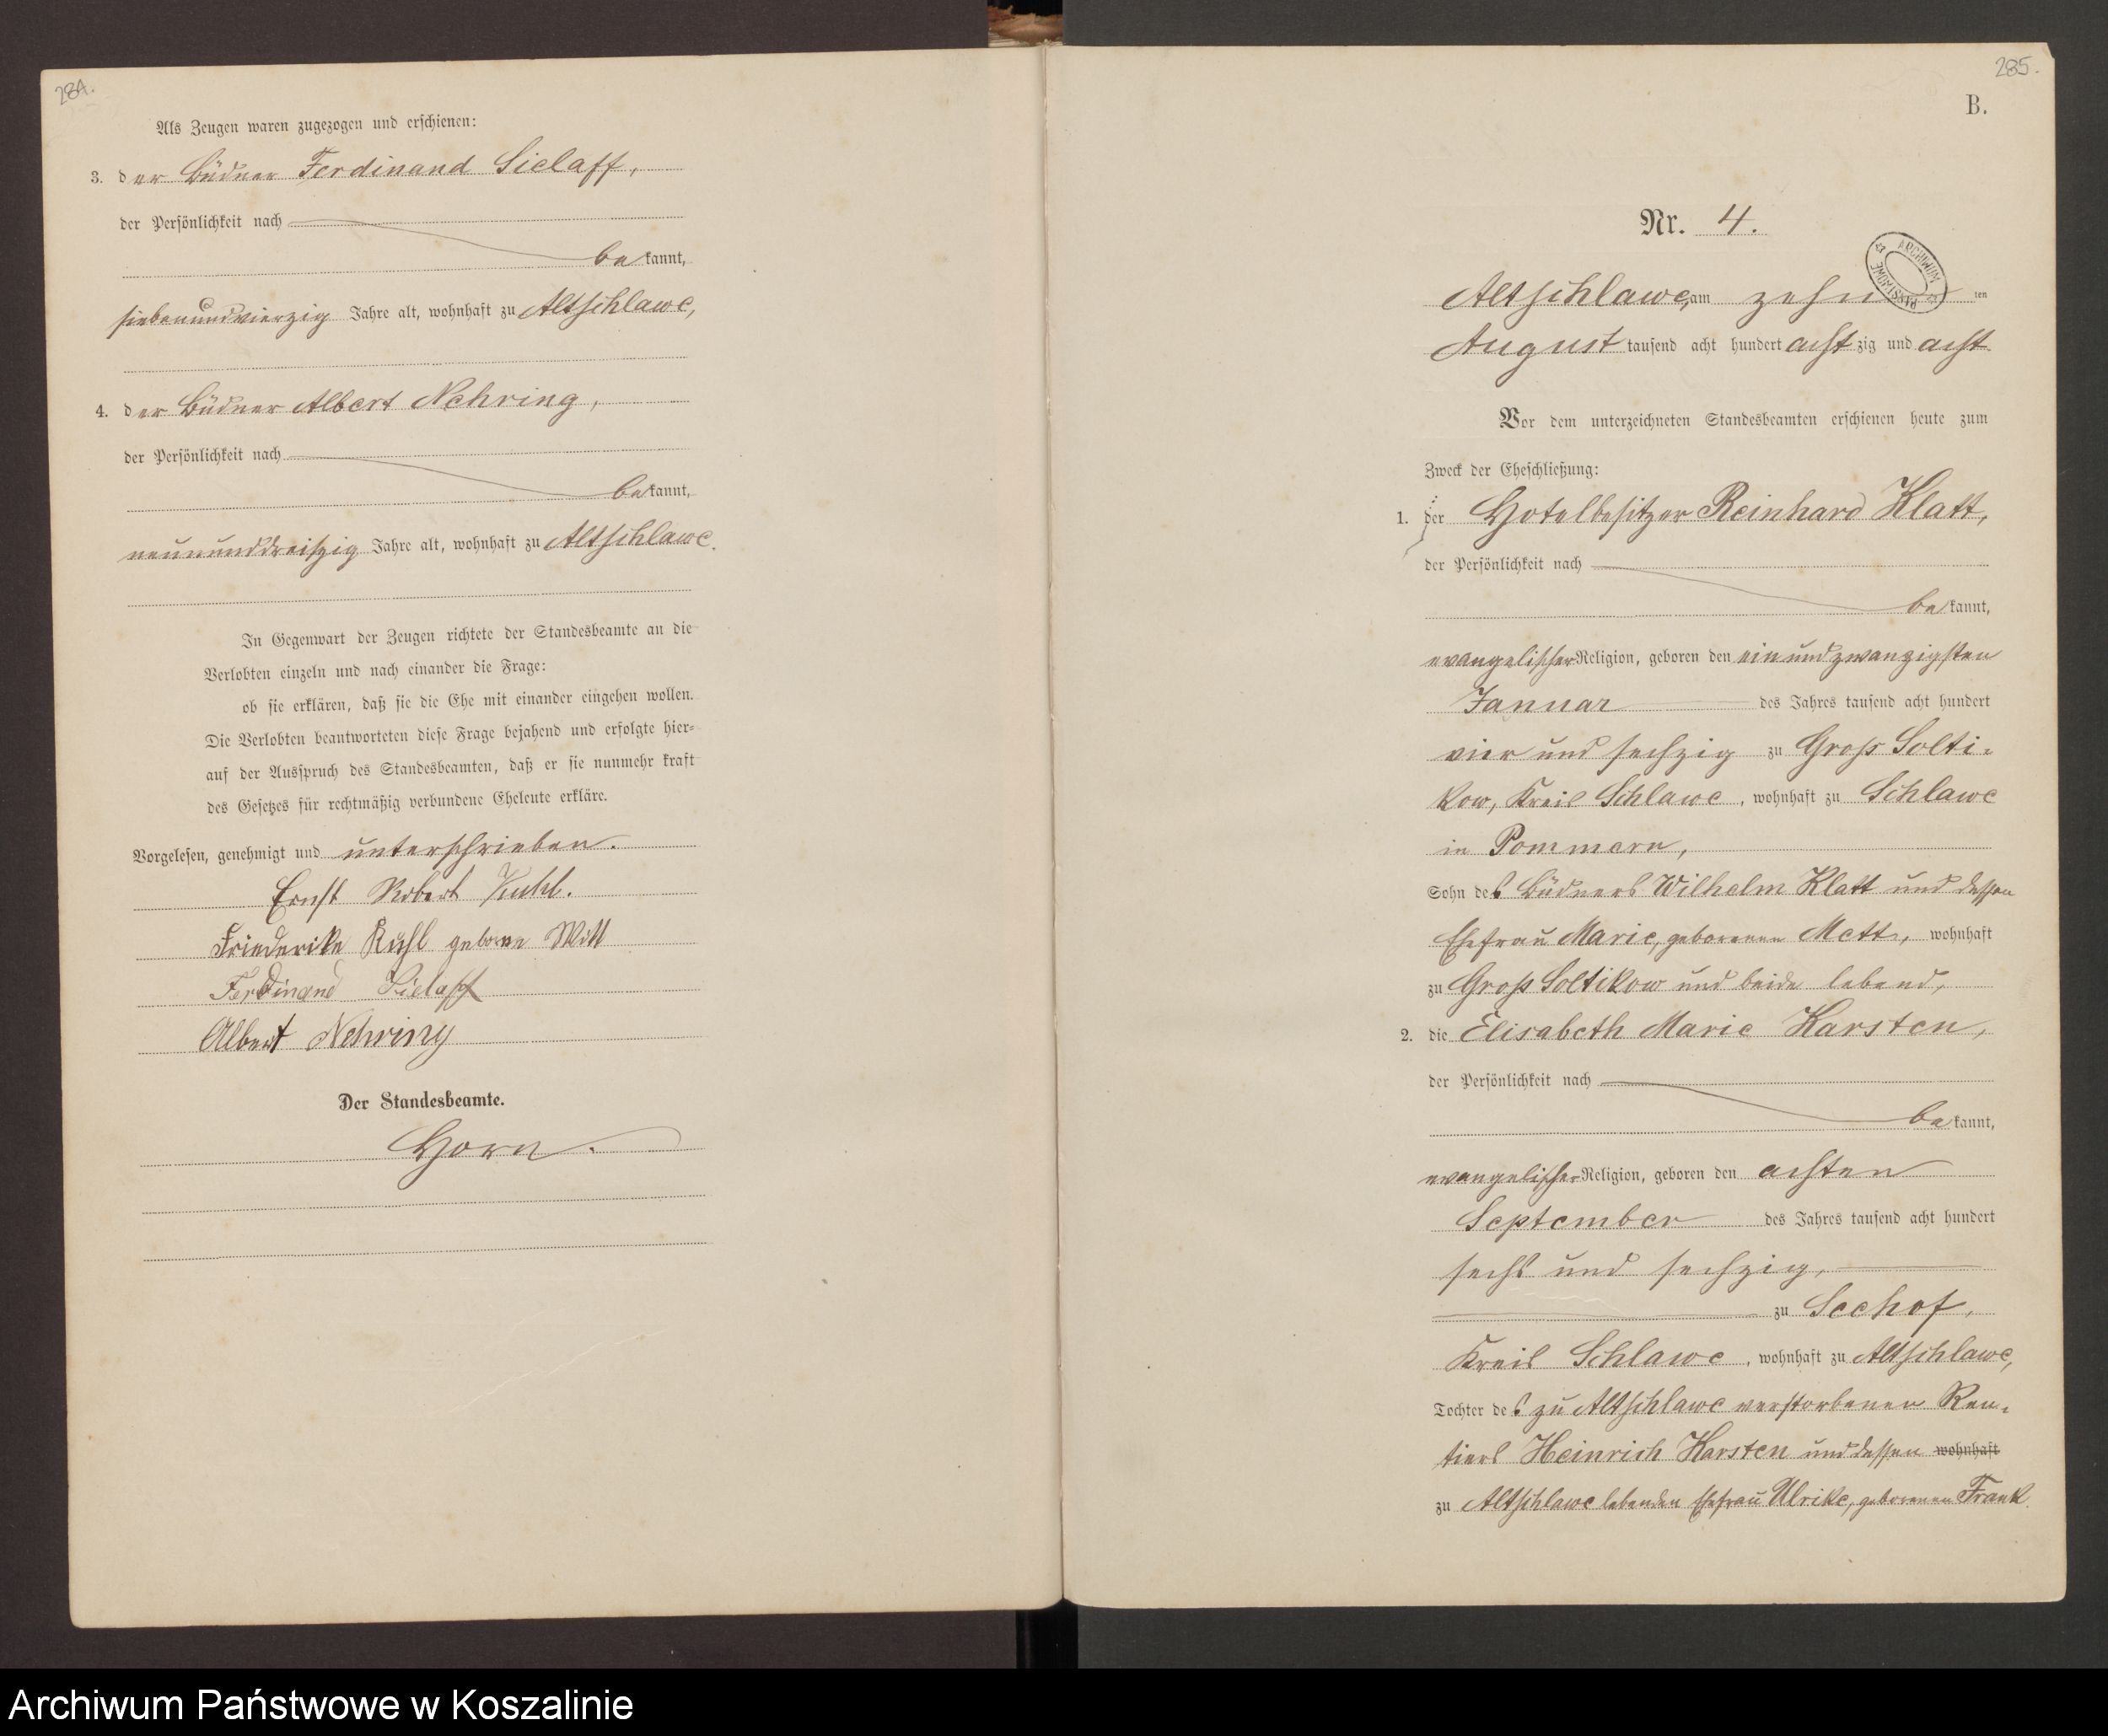 284.
Als Zeugen waren zugezogen und erschienen:
3. der Büdner Ferdinand Sielaff,
der Persönlichkeit nach
bekannt,
siebenundvierzig Jahre alt, wohnhaft zu Altschlawe,
4. der Büdner Albert Nehring,
der Persönlichkeit nach
bekannt,
neununddreißig Jahre alt, wohnhaft zu Altschlawe.
In Gegenwart der Zeugen richtete der Standesbeamte an die
Verlobten einzeln und nach einander die Frage:
ob sie erklären, daß sie die Ehe mit einander eingehen wollen.
Die Verlobten beantworteten diese Frage bejahend und erfolgte hier-
auf der Ausspruch des Standesbeamten, daß er sie nunmehr kraft
des Gesetzes für rechtmäßig verbundene Eheleute erkläre.
Vorgelesen, genehmigt und unterschrieben.
Ernst Robert Kuhl.
Friederike Kuhl geborne Witt
Ferdinand Sielaff
Albert Nehring
Der Standesbeamte.
Horn.
285.
B.
Nr. 4.
ARCHIWUM PAŃSTWOWE
Altschlawe, am zehnten
August tausend acht hundert achtzig und acht
Vor dem unterzeichneten Standesbeamten erschienen heute zum
Zweck der Eheschließung:
1. der Hotelbesitzer Reinhard Klatt,
der Persönlichkeit nach
bekannt,
evangelischer Religion, geboren den einundzwanzigsten
Januar des Jahres tausend acht hundert
vier und sechzig zu Groß Solti-
kow, Kreis Schlawe, wohnhaft zu Schlawe
in Pommern,
Sohn des Büdners Wilhelm Klatt und dessen
Ehefrau Marie, geborenen Mett, wohnhaft
zu Groß Soltikow und beide lebend,
2. die Elisabeth Marie Karsten,
der Persönlichkeit nach
bekannt,
evangelischer Religion, geboren den achten
September des Jahres tausend acht hundert
sechs und sechzig,
zu Seehof,
Kreis Schlawe, wohnhaft zu Altschlawe,
Tochter des zu Altschlawe verstorbenen Ren-
tiers Heinrich Karsten und dessen wohnhaft
zu Altschlawe lebenden Ehefrau Ulrike, geborenen Frank.
Archiwum Państwowe w Koszalinie